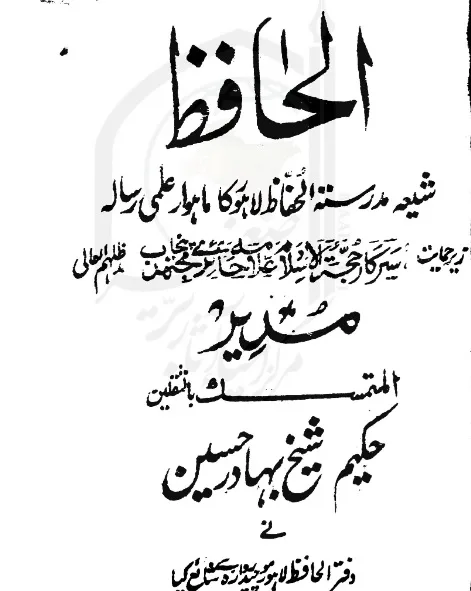 الحافظ
شیعہ مدرستہ الحفّاظ لاہور کا ماہوار علمی رسالہ
زیرحمایت سرکار حجۃ الاسلام علامہ حائری مجتہد پنجاب مدظلہم العالی
مدیر
المتمسک بالثقلین
حکیم شیخ بہادر حسین
نے
دفتر الحافظ لاہور موچیدروازہ سے شائع کیا